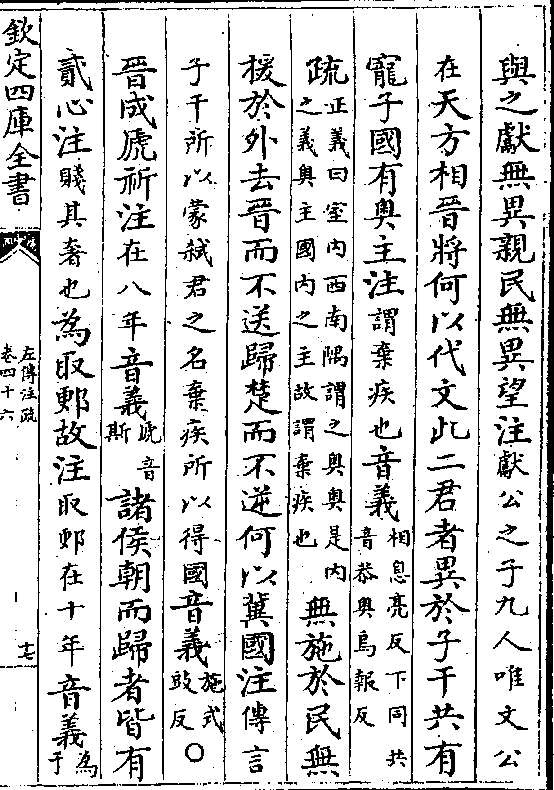 與之獻無異親民無異望注獻公之子九人唯文公
在天方相晉將何以代文此二君者異於子干共有
寵子國有奥主注謂棄疾也音義相息亮反下同共
音恭奥烏報反
疏正義曰室内西南隅謂之奥奥是内
之義奥主國内之主故謂棄疾也無施於民無
援於外去晉而不送歸楚而不逆何以冀國注傳言
子干所以蒙弑君之名棄疾所以得國音義施式
豉反○
晉成虒祁注在八年音義虒音
斯諸侯朝而歸者皆有
貳心注賤其奢也為取郠故注取郠在十年音義為
于
欽定四庫全書
左傳注疏
卷四十六
十七